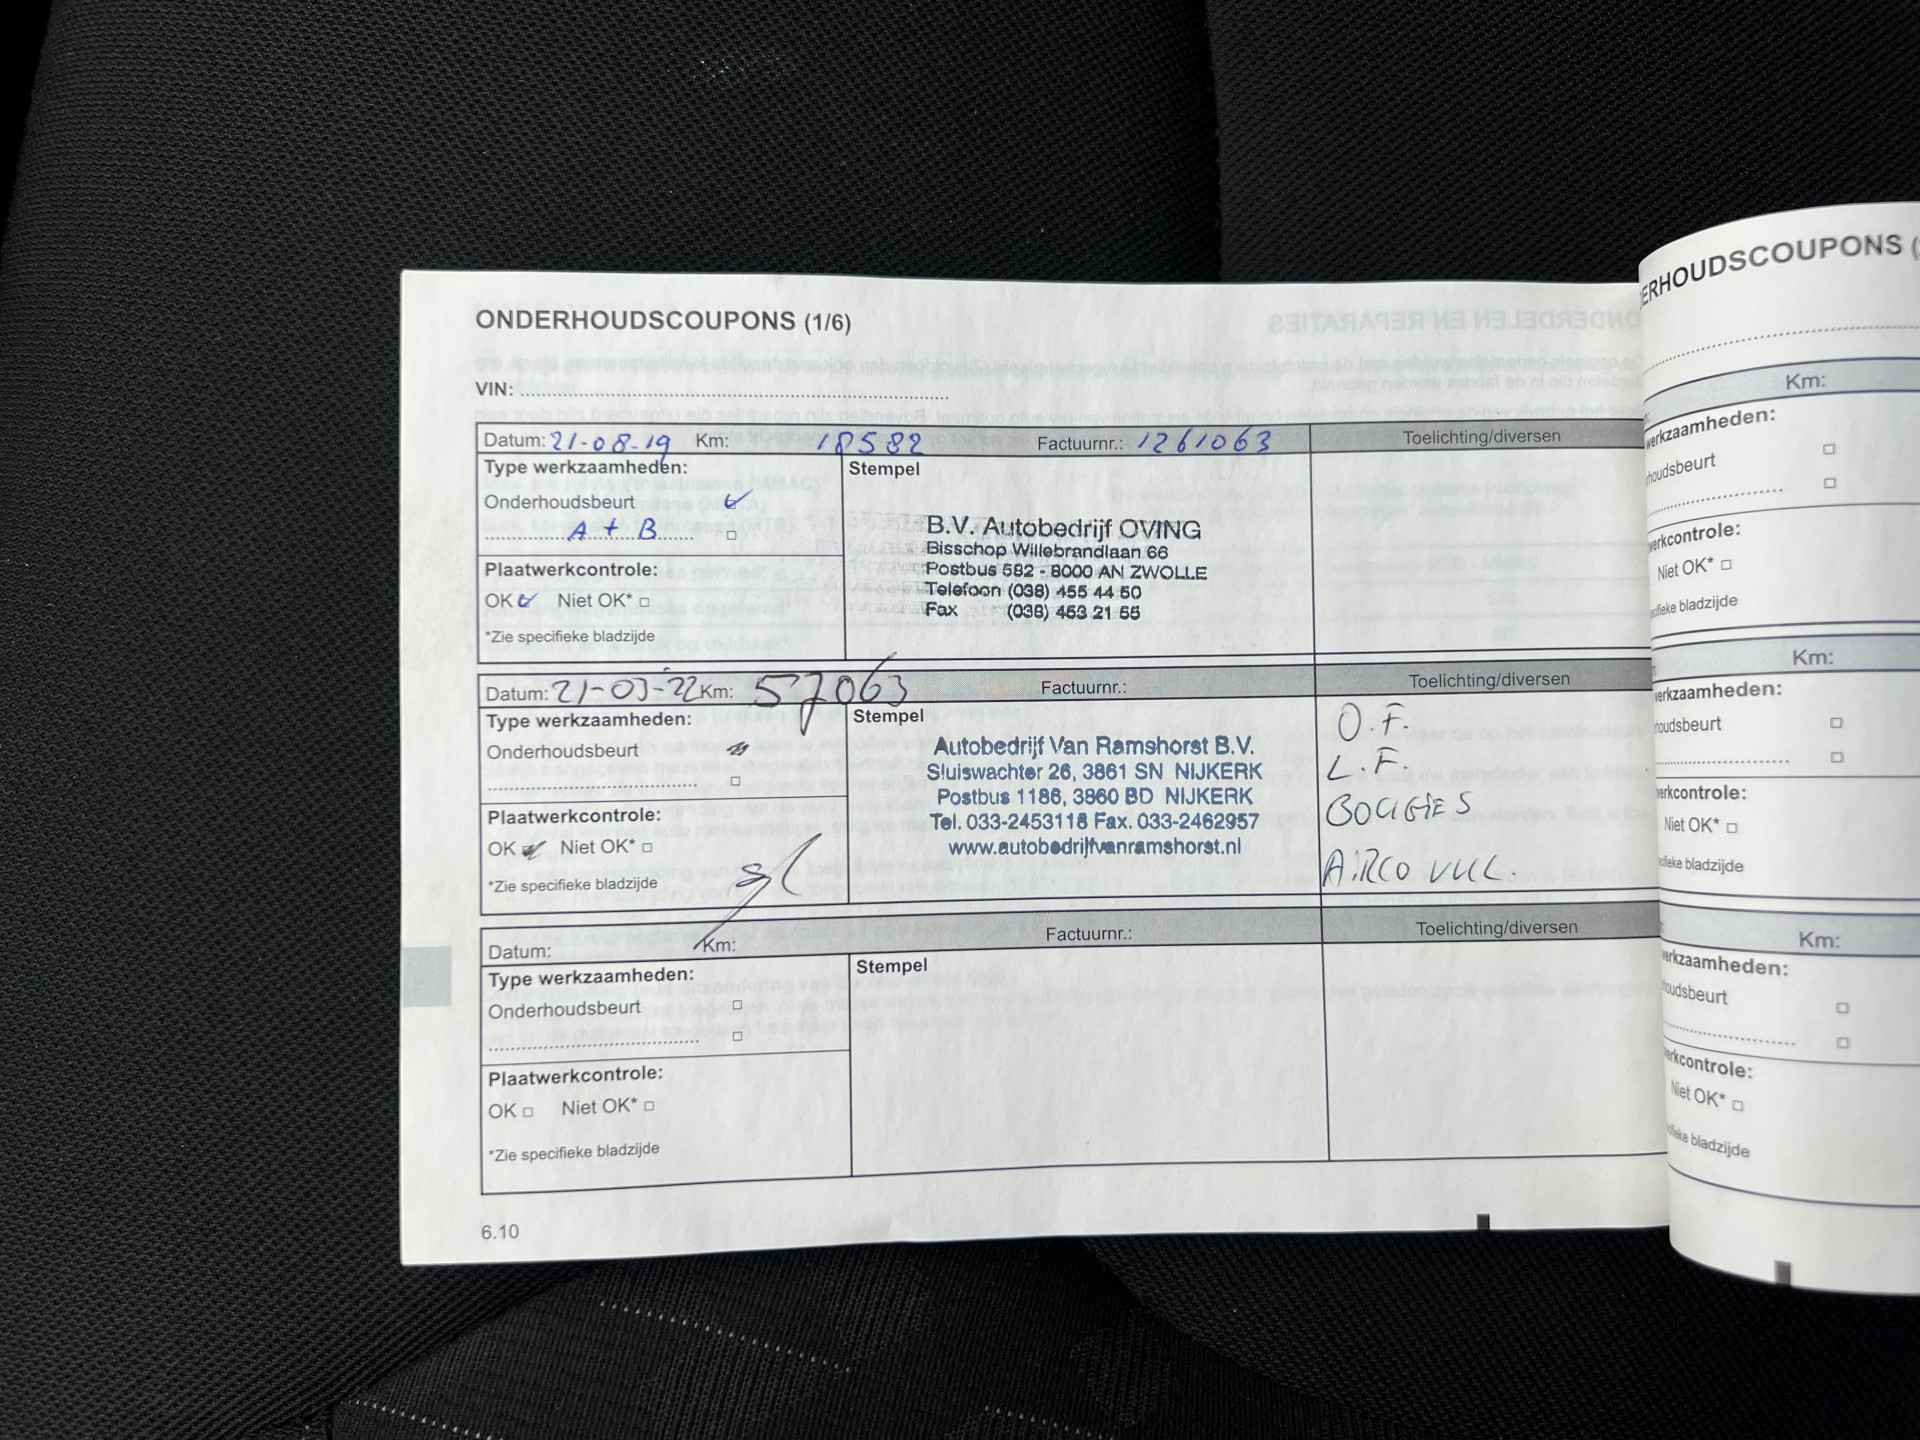 ONDERHOUDSCOUPONS (1/6)
VIN:
Datum: 21-08-19 Km: 18582 Factuurnr.: 1261063 Toelichting/diversen
Type werkzaamheden:
Stempel
Onderhoudsbeurt
A + B
B.V. Autobedrijf OVING
Bisschop Willebrandlaan 66
Postbus 582 - 8000 AN ZWOLLE
Telefoon (038) 455 44 50
Fax (038) 453 21 55
Plaatwerkcontrole:
OK Niet OK*
*Zie specifieke bladzijde
Datum: 21-03-22 Km: 57063 Factuurnr.: Toelichting/diversen
Type werkzaamheden:
Stempel
Onderhoudsbeurt
Autobedrijf Van Ramshorst B.V.
Sluiswachter 26, 3861 SN NIJKERK
Postbus 1186, 3860 BD NIJKERK
Tel. 033-2453118 Fax. 033-2462957
www.autobedrijfvanramshorst.nl
O.F.
L.F.
BOUGIES
AIRCO VUL.
Plaatwerkcontrole:
OK Niet OK*
*Zie specifieke bladzijde
Datum: Km: Factuurnr.: Toelichting/diversen
Type werkzaamheden:
Stempel
Onderhoudsbeurt
Plaatwerkcontrole:
OK Niet OK*
*Zie specifieke bladzijde
6.10
ERHOUDSCOUPONS (
Km:
werkzaamheden:
houdsbeurt
werkcontrole:
Niet OK*
bladzijde
Km:
werkzaamheden:
houdsbeurt
werkcontrole:
Niet OK*
bladzijde
Km:
erkzaamheden:
oudsbeurt
erkcontrole:
Niet OK*
bladzijde